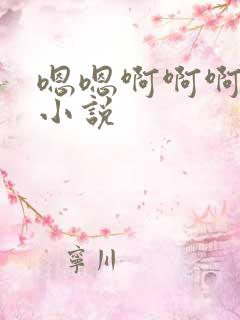 嗯嗯啊啊啊
小說
寧川